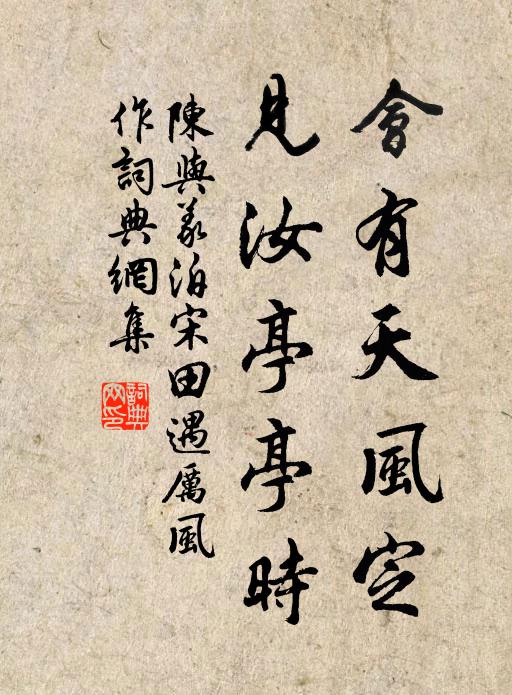 會有天風定
見汝亭亭時
陳與義泊宋田遇厲風
作詞典網集
詞典
網印